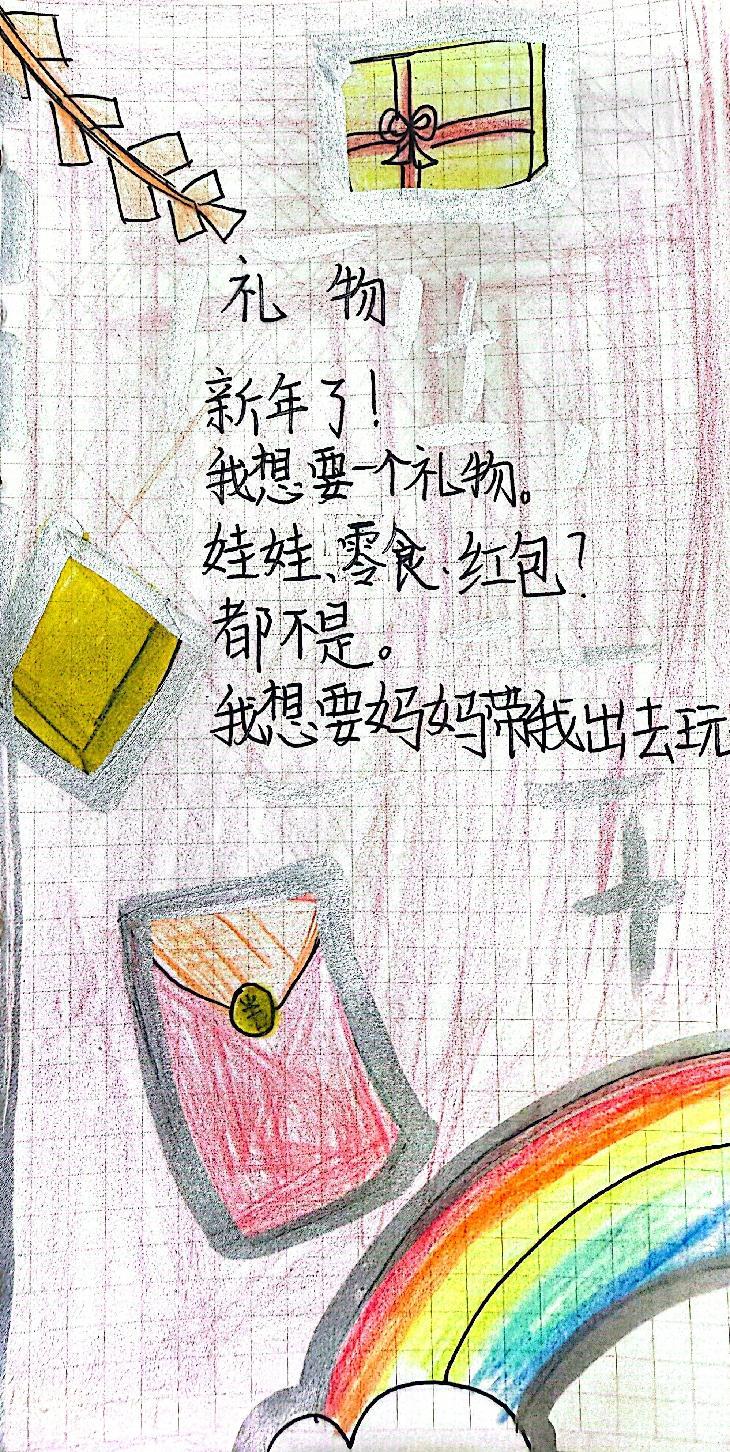 礼物
新年了！
我想要一个礼物。
娃娃、零食、红包？
都不是。
我想要妈妈带我出去玩